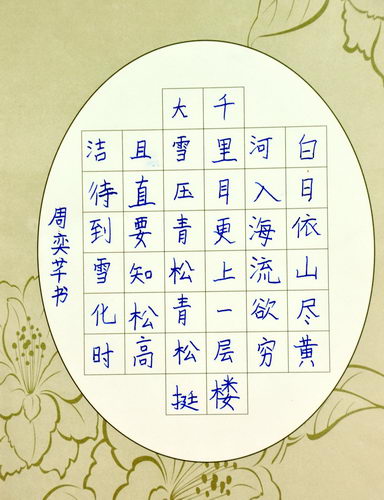 白日依山尽黄
河入海流欲穷
千里目更上一层楼
大雪压青松青松挺
且直要知松高
洁待到雪化时
周奕芊书